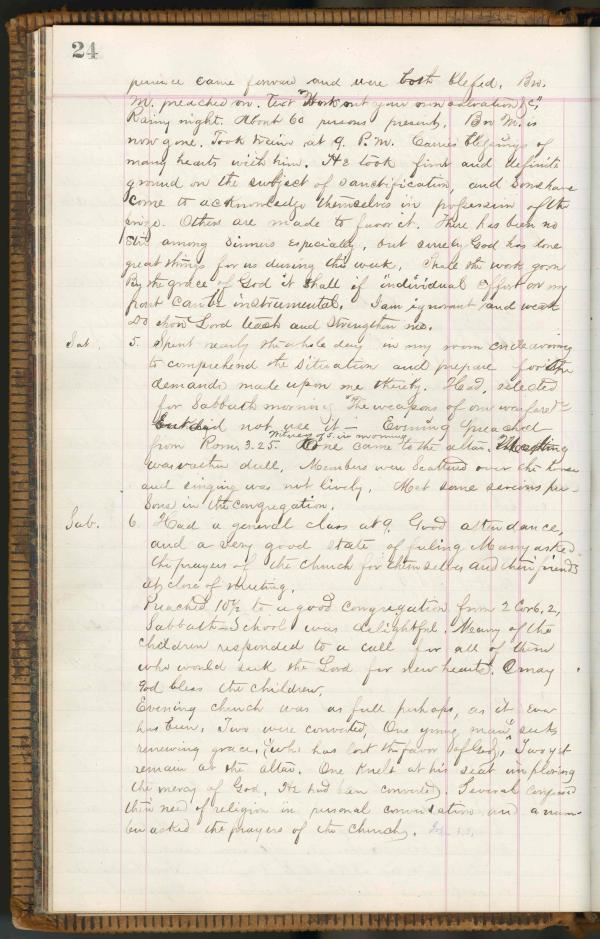 24
perience came forward and were both blessed. Bro.
M. preached on. Text "Work out your own salvation &c",
Rainy night. About 60 persons present. Bro M. is
now gone. Took train at 9. P.M. Carries blessings of
many hearts with him. He took firm and definite
ground on the subject of sanctification, and some have
come to acknowledge themselves in profession of the
Others are made to favor it. There has been no
stir among sinners especially, but surely God has done
great things for us during this week. Shall the work go on
By the grace of God it shall if individual effort on my
part can be instrumental. I am ignorant and weak
Do thou Lord teach and strengthen me.
Sat. 5. Spent nearly the whole day in my room endeavoring
to comprehend the situation and prepare for the
demands made upon me thereby. Had selected
for Sabbath morning "The weapons of our warfare &c
But did not use it — Evening preached
from Rom. 3.25. in morning
None came to the altar. Meeting
was rather dull. Members were scattered over the house
and singing was not lively. Met some serious per-
sons in the congregation.
Sab. 6. Had a general class at 9. Good attendance,
and a very good state of feeling. Many asked
the prayers of the church for themselves and their friends
at close of meeting.
Preached 10½ to a good congregation from 2 Cor 6, 2,
Sabbath-School was delightful. Many of the
children responded to a call for all of them
who would seek the Lord for new hearts. O may
God bless the children.
Evening church was as full perhaps, as it ever
has been. Two were converted, One young man seeks
renewing grace, (who has lost the favor of God), Two yet
remain at the altar. One knelt at his seat imploring
the mercy of God. He had been converted. Several confessed
their need of religion in personal conversation and a num-
ber asked the prayers of the church.